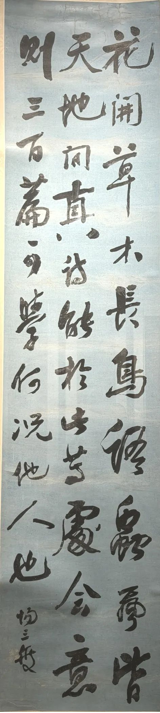 花開草木長鳥語蟲聲皆
天地間真詩能於此等處會意
則三百篇可學何況他人也